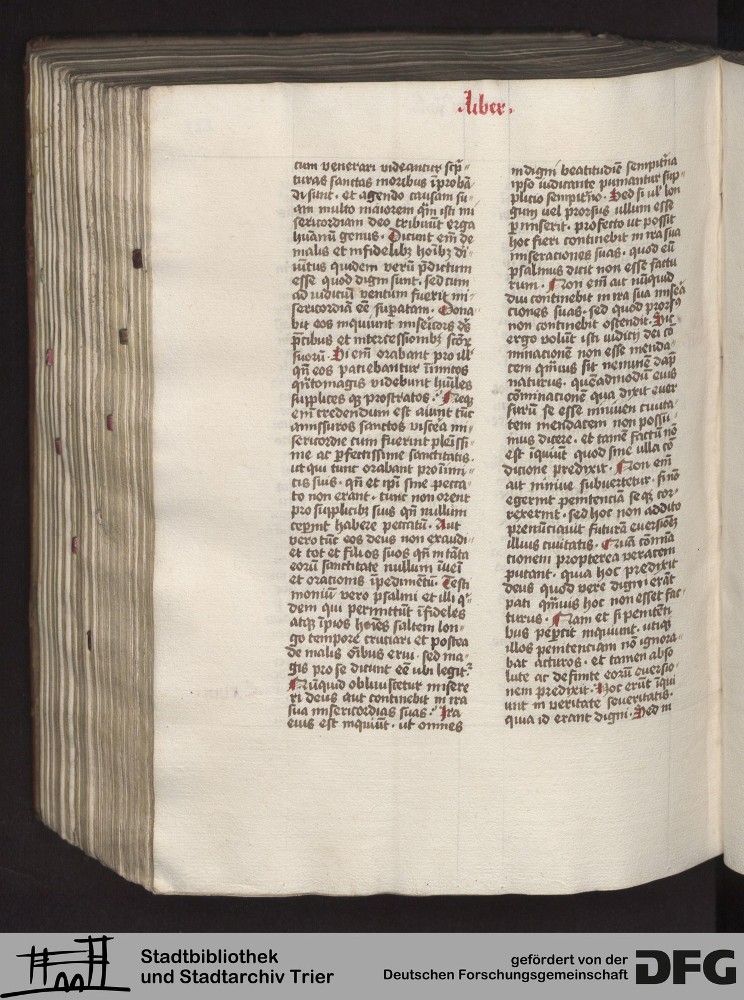 Liber.
cum venerari videantur sc̄p̄
turas sanctas moribus īprobā
di sunt. et agendo causam su
am multo maiorem qm̄ isti mi
sericordiam deo tribuūt erga
humanū genus. Dicunt em̄ de
malis et infidelibꝫ hoībꝫ di
uītus quidem verū p̄dictum
esse quod digni sunt. sed cum
ad iudiciū ventum fuerit mi
sericordiā eē sup̄atam. Dona
bit eos inquiunt miserīcors ds̄
p̄cibus et intercessionibꝫ sctōꝝ
suoru. Si em̄ orabant pro ill'
qn̄ eos patiebantur īimicos
qn̄tomagis videbunt hūīles
supplices qꝫ prostratos. Neqꝫ
em̄ credendum est aiunt tūc
amissuros sanctos viscēa mi
sericordie cum fuerint plēīssi
me ac p̄fectissime sanctitatis.
ut qui tunc orabant pro inimi
cis suis. qn̄ et ip̄i sine pecca
to non erant. tunc non orent
pro supplicibꝫ suis qn̄ nullum
cep̄int habere peccatū. Aut
vero tūc eos deus non exaudi
et tot et filios suos qn̄ in tāta
eorū sanctitate nullum īuēī
et orationis īpedimētū. Testi
monium vero psalmi et illi q'
dem qui permittūt īfideles
atqꝫ īpios hoīes saltem lon
go tempore cruciari et postea
de malis oībus erui. sed ma
gis pro se dicunt eē ubi legit᷑
Nūquid obliuiscetur misere
ri deus aut continebit in ira
sua misericordias suas. Ira
eius est inquiūt. ut omnes
indigni beatitudīe sempit̄na
ipso iudicante puniantur sup
plicio sempit̄no. Sed si ul' lon
gum uel prorsus ullum esse
p̄miserit. profecto ut possit
hoc fieri continebit in ira sua
miserationes suas. quod eū
psalmus dicit non esse factu
rum. Non em̄ ait nūquid
diu continebit in ira sua miserā
ciones suas. sed quod prorsꝰ
non continebit ostendit. Sic
ergo volūt isti iudicij dei cō
minacionē non esse menda
cem qm̄uis sit neminē dap̄
naturus. quēadmodū eius
cōminacionē qua dixit euer
surū se esse niniuen ciuita
tem mendacem non possu
mus dicere. et tamē factū nō
est īquiūt quod sine ulla cō
dicione predixit. Non em̄
ait niniue subuertetur. si nō
egerint penitenciā se qꝫ cor
rexerint. sed hoc non addito
prenūciauit futurā euersionē
illius ciuitatis. Quā cōmīa
cionem propterea veracem
putant. quia hoc predixit
deus quod vere digni erāt
pati qm̄uis hoc non esset fac
turus. Nam et si penitēti
bus pep̄cit inquiunt. utiqꝫ
illos penitenciam nō ignora
bat acturos. et tamen abso
lute ac definite eorū euersio
nem predixit. Hoc erūt īqui
unt in veritate seueritatis.
quia id erant digni. Sed in
Stadtbibliothek
und Stadtarchiv Trier
gefördert von der
Deutschen Forschungsgemeinschaft
DFG